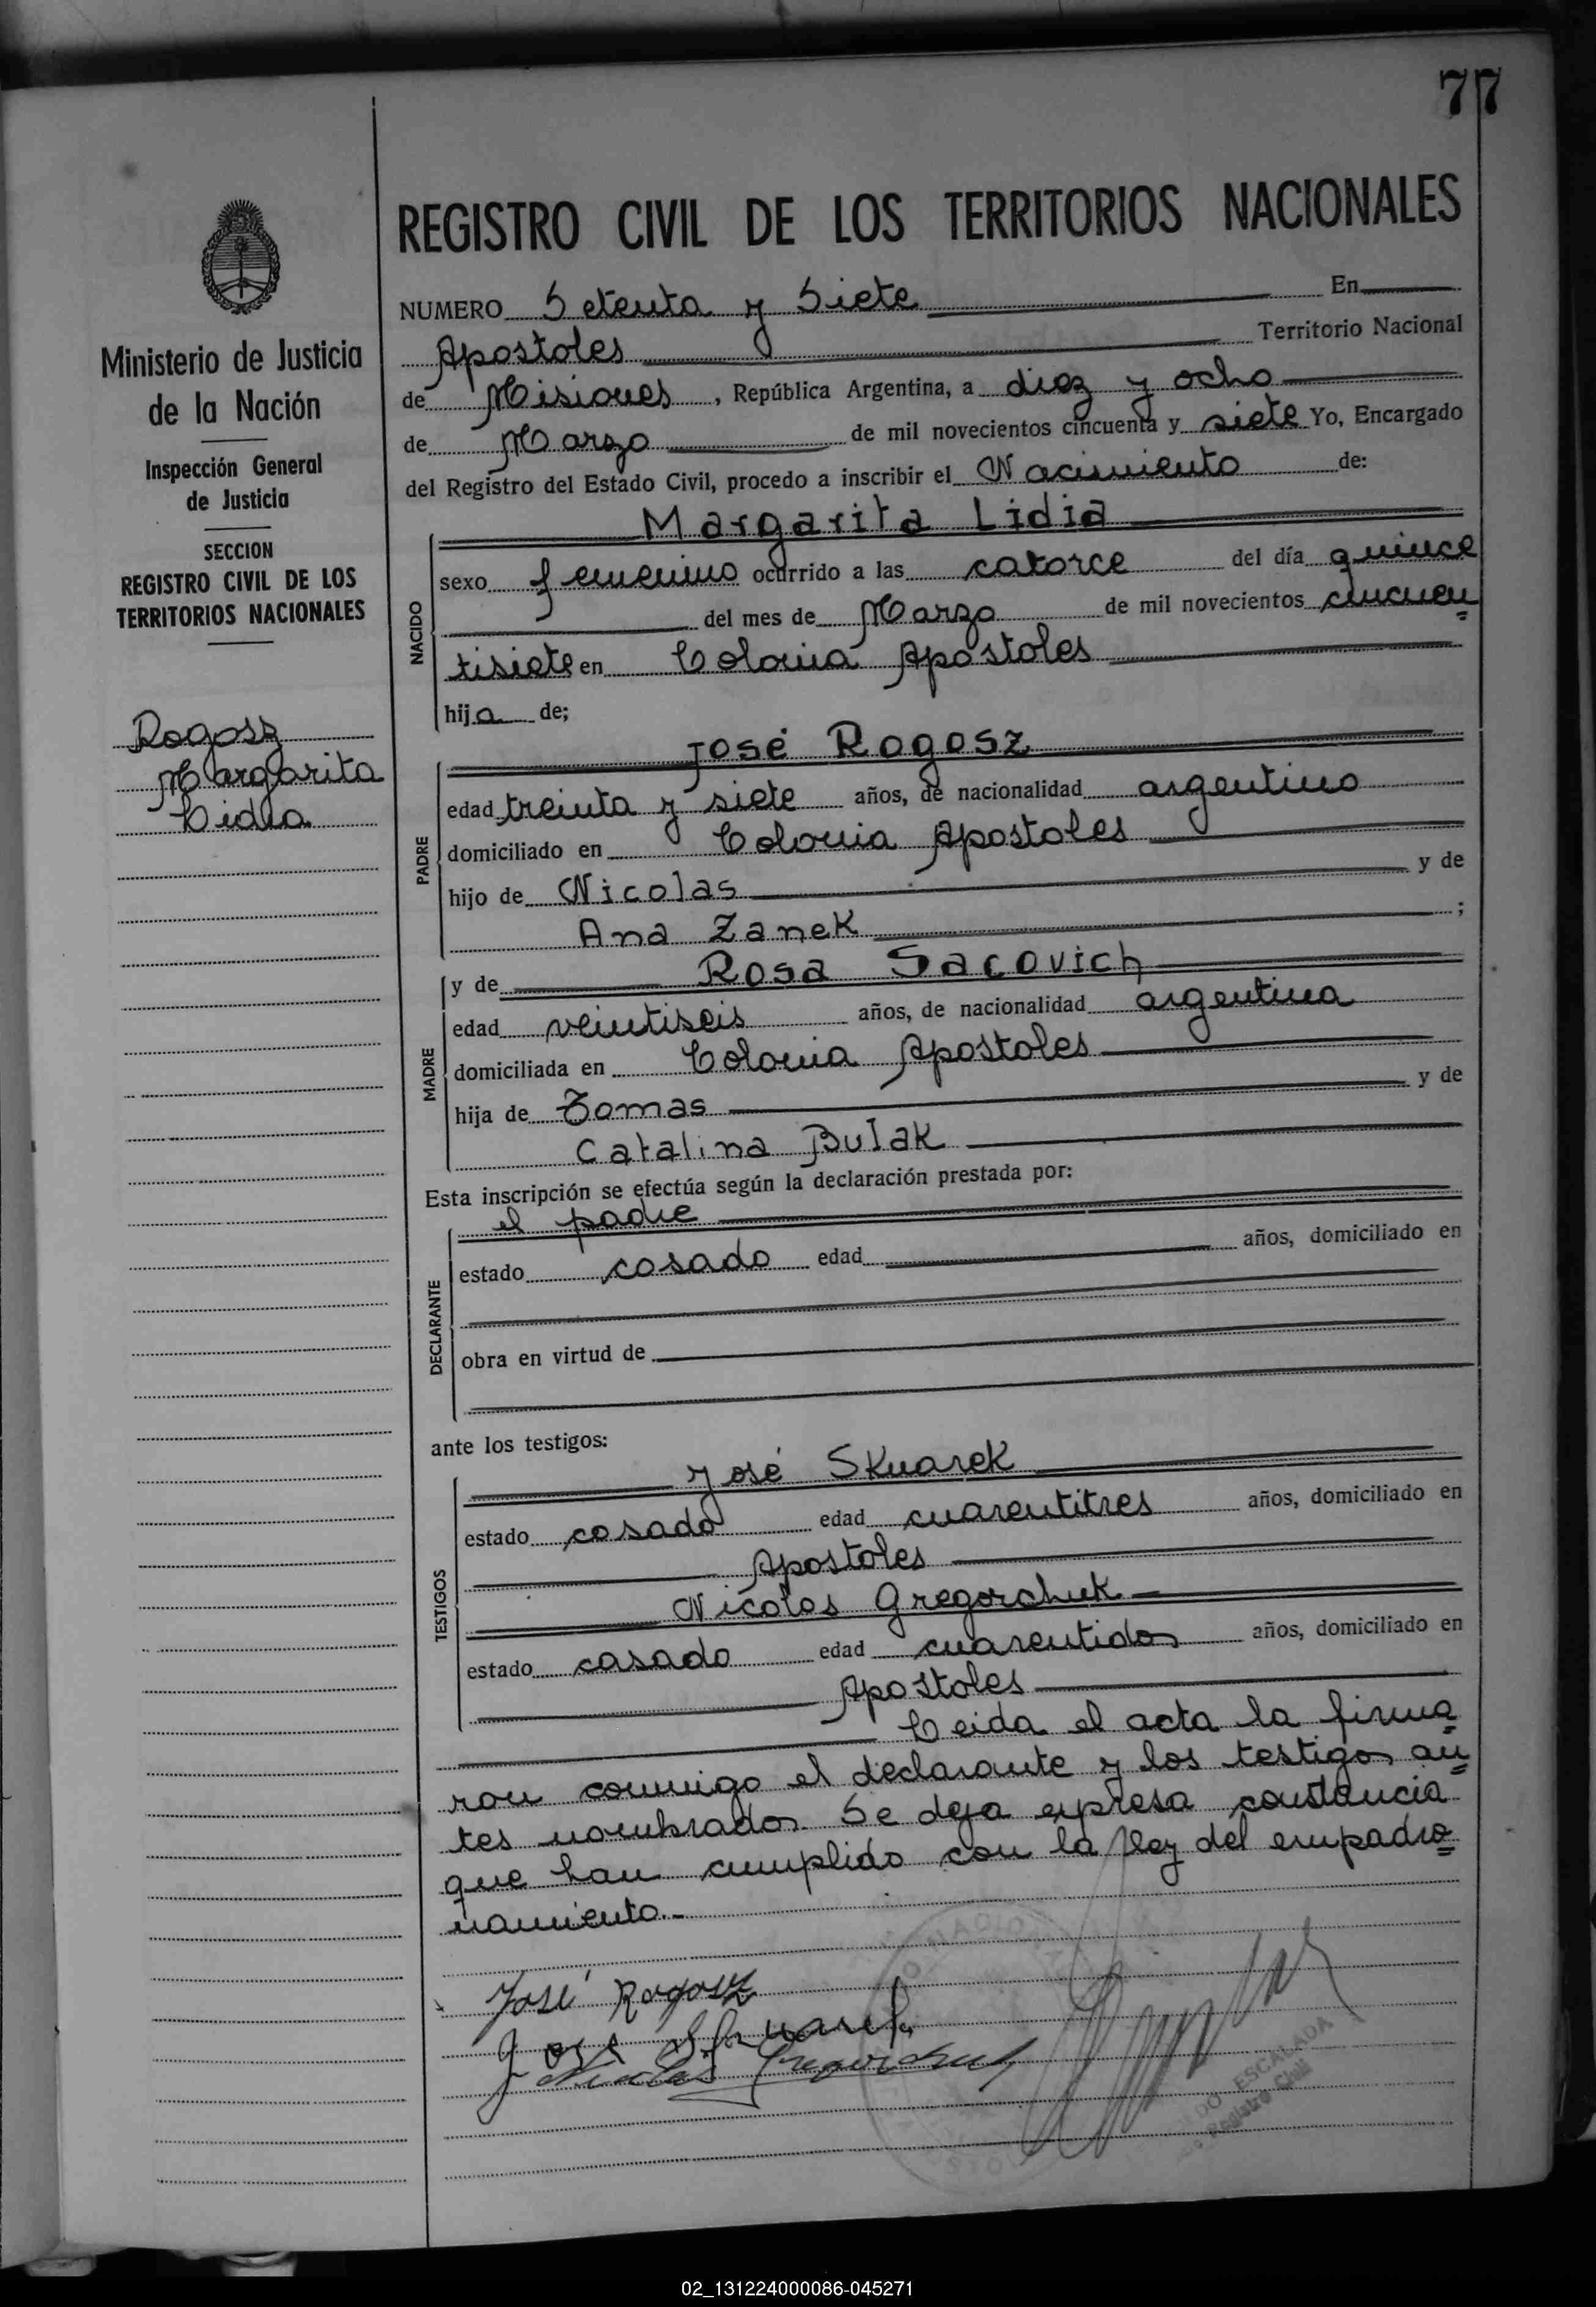 77
REGISTRO CIVIL DE LOS TERRITORIOS NACIONALES
Ministerio de Justicia
de la Nación
Inspección General
de Justicia
SECCION
REGISTRO CIVIL DE LOS
TERRITORIOS NACIONALES
Rogosz
Margarita
Lidia
NUMERO Setenta y Siete En
Apostoles Territorio Nacional
de Misiones, República Argentina, a diez y ocho
de Marzo de mil novecientos cincuenta y siete Yo, Encargado
del Registro del Estado Civil, procedo a inscribir el Nacimiento de:
NACIDO
Margarita Lidia
sexo femenino ocurrido a las catorce del día quince
del mes de Marzo de mil novecientos cincuen
tisiete en Colonia Apostoles
hija de;
PADRE
José Rogosz
edad treinta y siete años, de nacionalidad argentino
domiciliado en Colonia Apostoles
hijo de Nicolas y de
Ana Zanek ;
MADRE
y de Rosa Sacovich
edad veintiseis años, de nacionalidad argentina
domiciliada en Colonia Apostoles
hija de Tomas y de
Catalina Bulak
Esta inscripción se efectúa según la declaración prestada por:
DECLARANTE
el padre
estado casado edad años, domiciliado en
obra en virtud de
ante los testigos:
TESTIGOS
José Skuarek
estado casado edad cuarentitres años, domiciliado en
Apostoles
Nicolas Gregorchuk
estado casado edad cuarentidos años, domiciliado en
Apostoles
Leida el acta la firma
ron conmigo el declarante y los testigos an
tes nombrados. Se deja expresa constancia
que han cumplido con la ley del empadro
namiento.-
José Rogosz
José Skuarek
Nicolas Gregorchuk
DO ESCALADA
Registro Civil
02_131224000086-045271